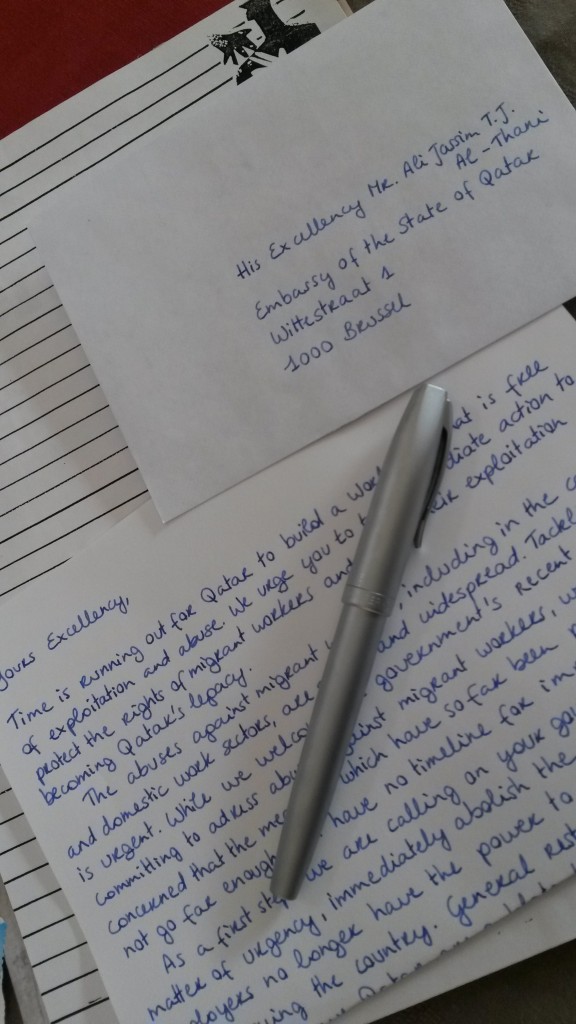 His Excellency Mr. Ali Jassim T.J.
Al-Thani
Embassy of the State of Qatar
Wittestraat 1
1000 Brussel
Yours Excellency,
Time is running out for Qatar to build a that is free
of exploitation and abuse. We urge you to to
protect the rights of migrant workers and exploitation
becoming Qatar's legacy.
The abuses against migrant including in the
and domestic work sectors, are and widespread.
is urgent. While we government's recent
committing to adress against migrant workers,
concerned that the which have so far been
not go far enough have no timeline for
As a first we are calling on your
matter of urgency, immediately abolish the
no longer have the power to
the country. General